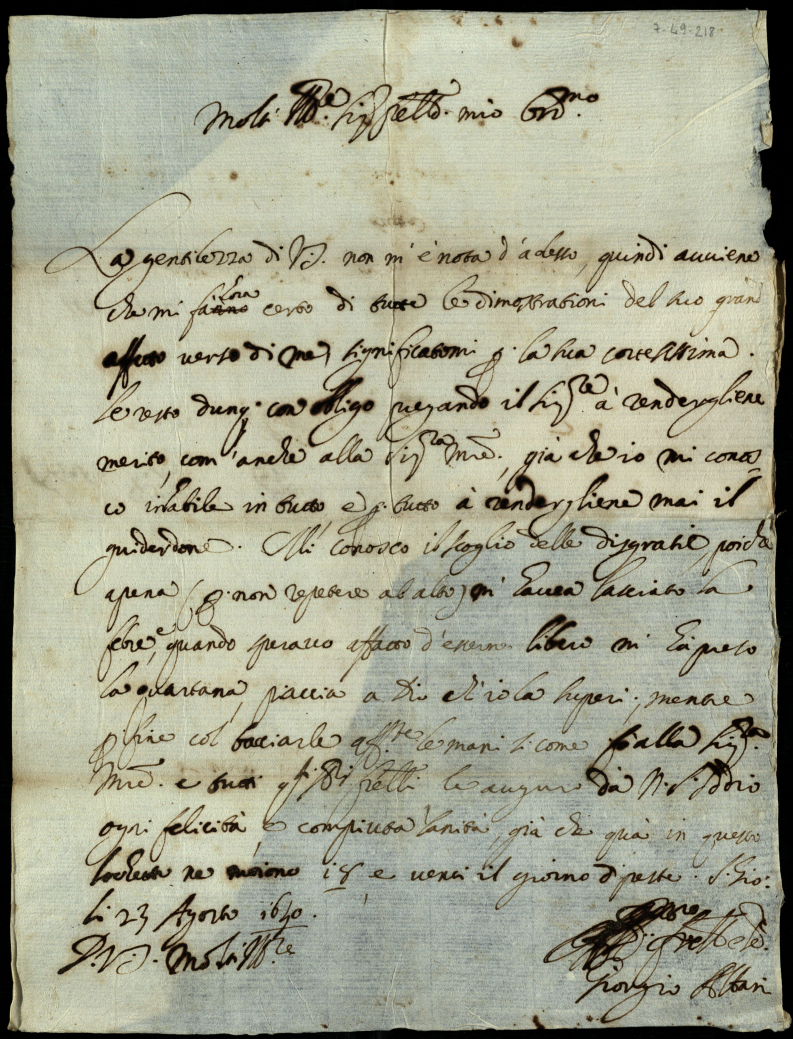 7-49-218
Molt' Ill.re Sig.r fratello mio Oss.mo
La gentilezza di V.S. non m'è nota d'adesso, quindi avviene
che mi fa hora certo di tutte le dimostrationi del suo grand
affetto verso di me, significatomi p. la sua cortesissima.
le resto dunq. con obligo pregando il Sig.re à rendergliene
merito, com'anche alla Sig.ra Mre., già che io mi conos=
co inhabile in tutto e p. tutto à rendergliene mai il
guiderdone. Mi conosco il scoglio delle disgratie, poiche
apena (p. non repetere ab alto) m'havea lasciato la
febre, e quando speravo affatto d'esserne libero mi hà preso
la quartana, piaccia a Dio ch'io la superi; mentre
p fine col bacciarle aff.te le mani si come fò alla Sig.ra
Mre. e tutti gli SS.ri frelli le auguro da N.S. Iddio
ogni felicità, e compiuta sanità, già che quà in questo
lochetto ne moiono 18 e venti il giorno di peste. S. Gio:
li 23 Agosto 1630.
D. V.S. Molt' Ill.re
Giorgio Altari